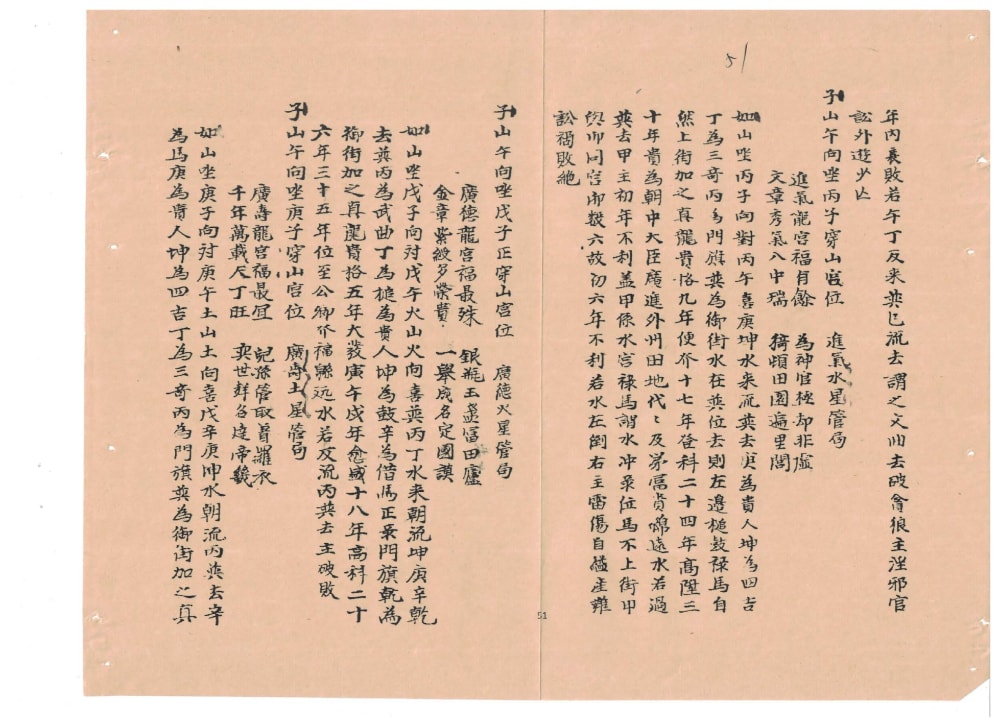 51
年內衰敗若午丁反来巽巳流去謂之文曲去破貪狼主淫邪官
訟外遊少亡
子山午向坐丙子穿山宮位 進氣水星管局
進氣龍宮福有餘 為神官極却非虛
文章秀氣八中瑞 猗頓田園遍里閭
如山坐丙子向對丙午喜庚坤水来流巽去庚為貴人坤為四吉
丁為三奇丙為門旗巽為御街水在巽位去則左邊槌鼓禄馬自
然上街加之真龍貴格九年便介十七年登科二十四年高陞三
十年貴為朝中大臣廣進外州田地代々及第富貴綿遠水若過
巽去甲主初年不利盖甲係水宮禄馬謂水冲录位馬不上街甲
與卯同宮卯數六故初六年不利若水左倒右主雷傷自縊產難
訟禍敗絶
子山午向坐戊子正穿山宮位 廣德火星管局
廣德龍宮福最殊 銀瓶玉盞富田廬
金章紫綬多榮貴 一舉成名定國謨
如山坐戊子向対戊午火山火向喜巽丙丁水来朝流坤庚辛乾
去巽丙為武曲丁為槌為貴人坤為鼓辛為借馬正录門旗乾為
御街加之真龍貴格五年大發寅午戌年愈盛十八年高科二十
六年三十五年位至公卿介福綿远水若反流丙巽去主破敗
子山午向坐庚子穿山宮位 廣壽土星管局
廣壽龍宮福最宜 兒孫管取着羅衣
千年萬載尺丁旺 奕世鮮名達帝畿
如山坐庚子向対庚午土山土向喜戊辛庚坤水朝流丙巽去辛
為馬庚為貴人坤為四吉丁為三奇丙為門旗巽為御街加之真
51